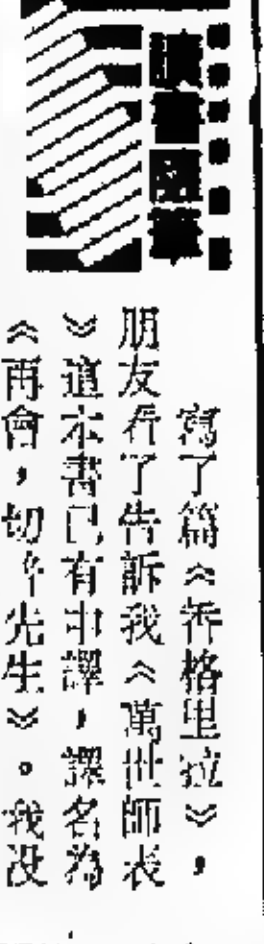 讀書隨筆
寫了篇《香格里拉》，
朋友看了告訴我《萬世師表
》這本書已有中譯，譯名為
《再會，切先生》。我没